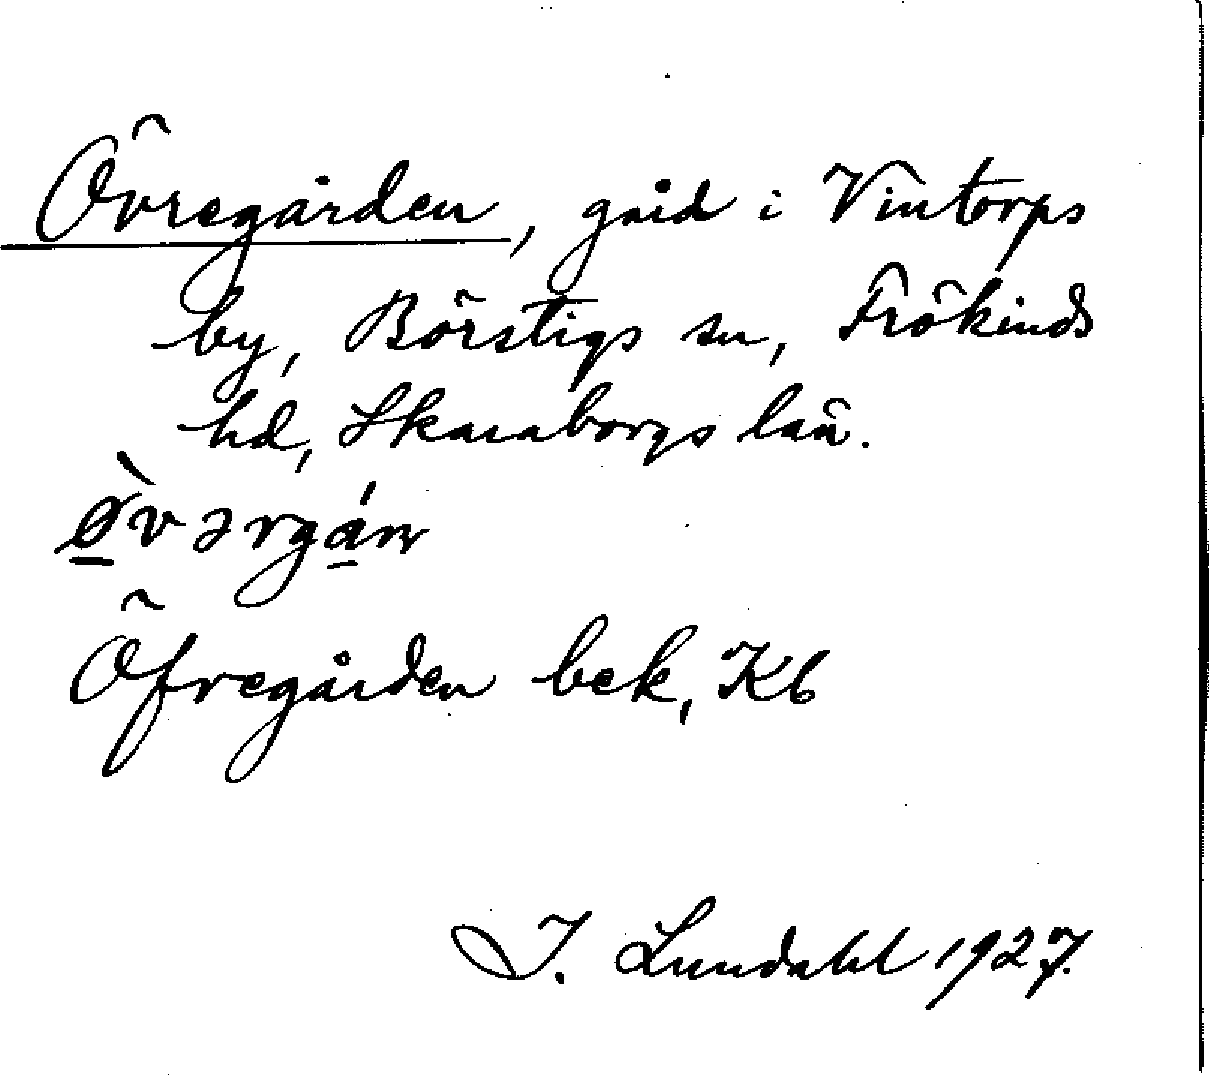 Övregården, gård i Vintorps
by, Börstigs sn, Frökinds
hd, Skaraborgs län.
ø̀vərgán
Öfregården bek, Kb
I. Lundahl 1927.